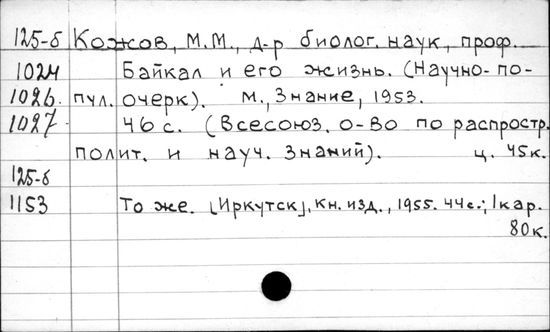 125-б Кожов, М.М., д-р биолог. наук, проф.
1024 Байкал и его жизнь. (Научно-по-
1026. пул. очерк). М., Знание, 1953.
1027 46 с. (Всесоюз. о-во по распростр.
полит. и науч. знаний). ц. 45к.
125-б
1153 То же. [Иркутск], кн. изд., 1955. 44с.; 1кар.
80к.